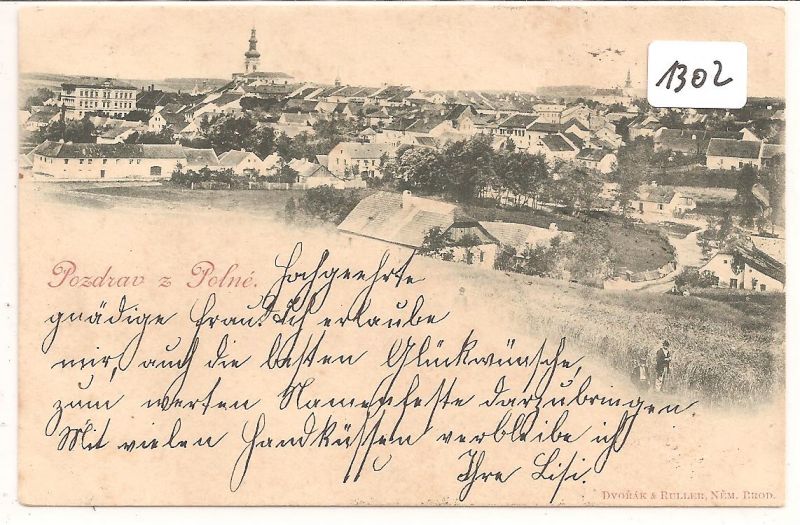 1302
Pozdrav z Polné.
Hochgeehrte
gnädige Frau! Ich erlaube
mir, auch die besten Glückwünsche,
zum werten Namenfeste darzubringen.
Mit vielen Handküssen verbleibe ich
Ihre Lisi.
DVOŘÁK & RULLER, NĚM. BROD.